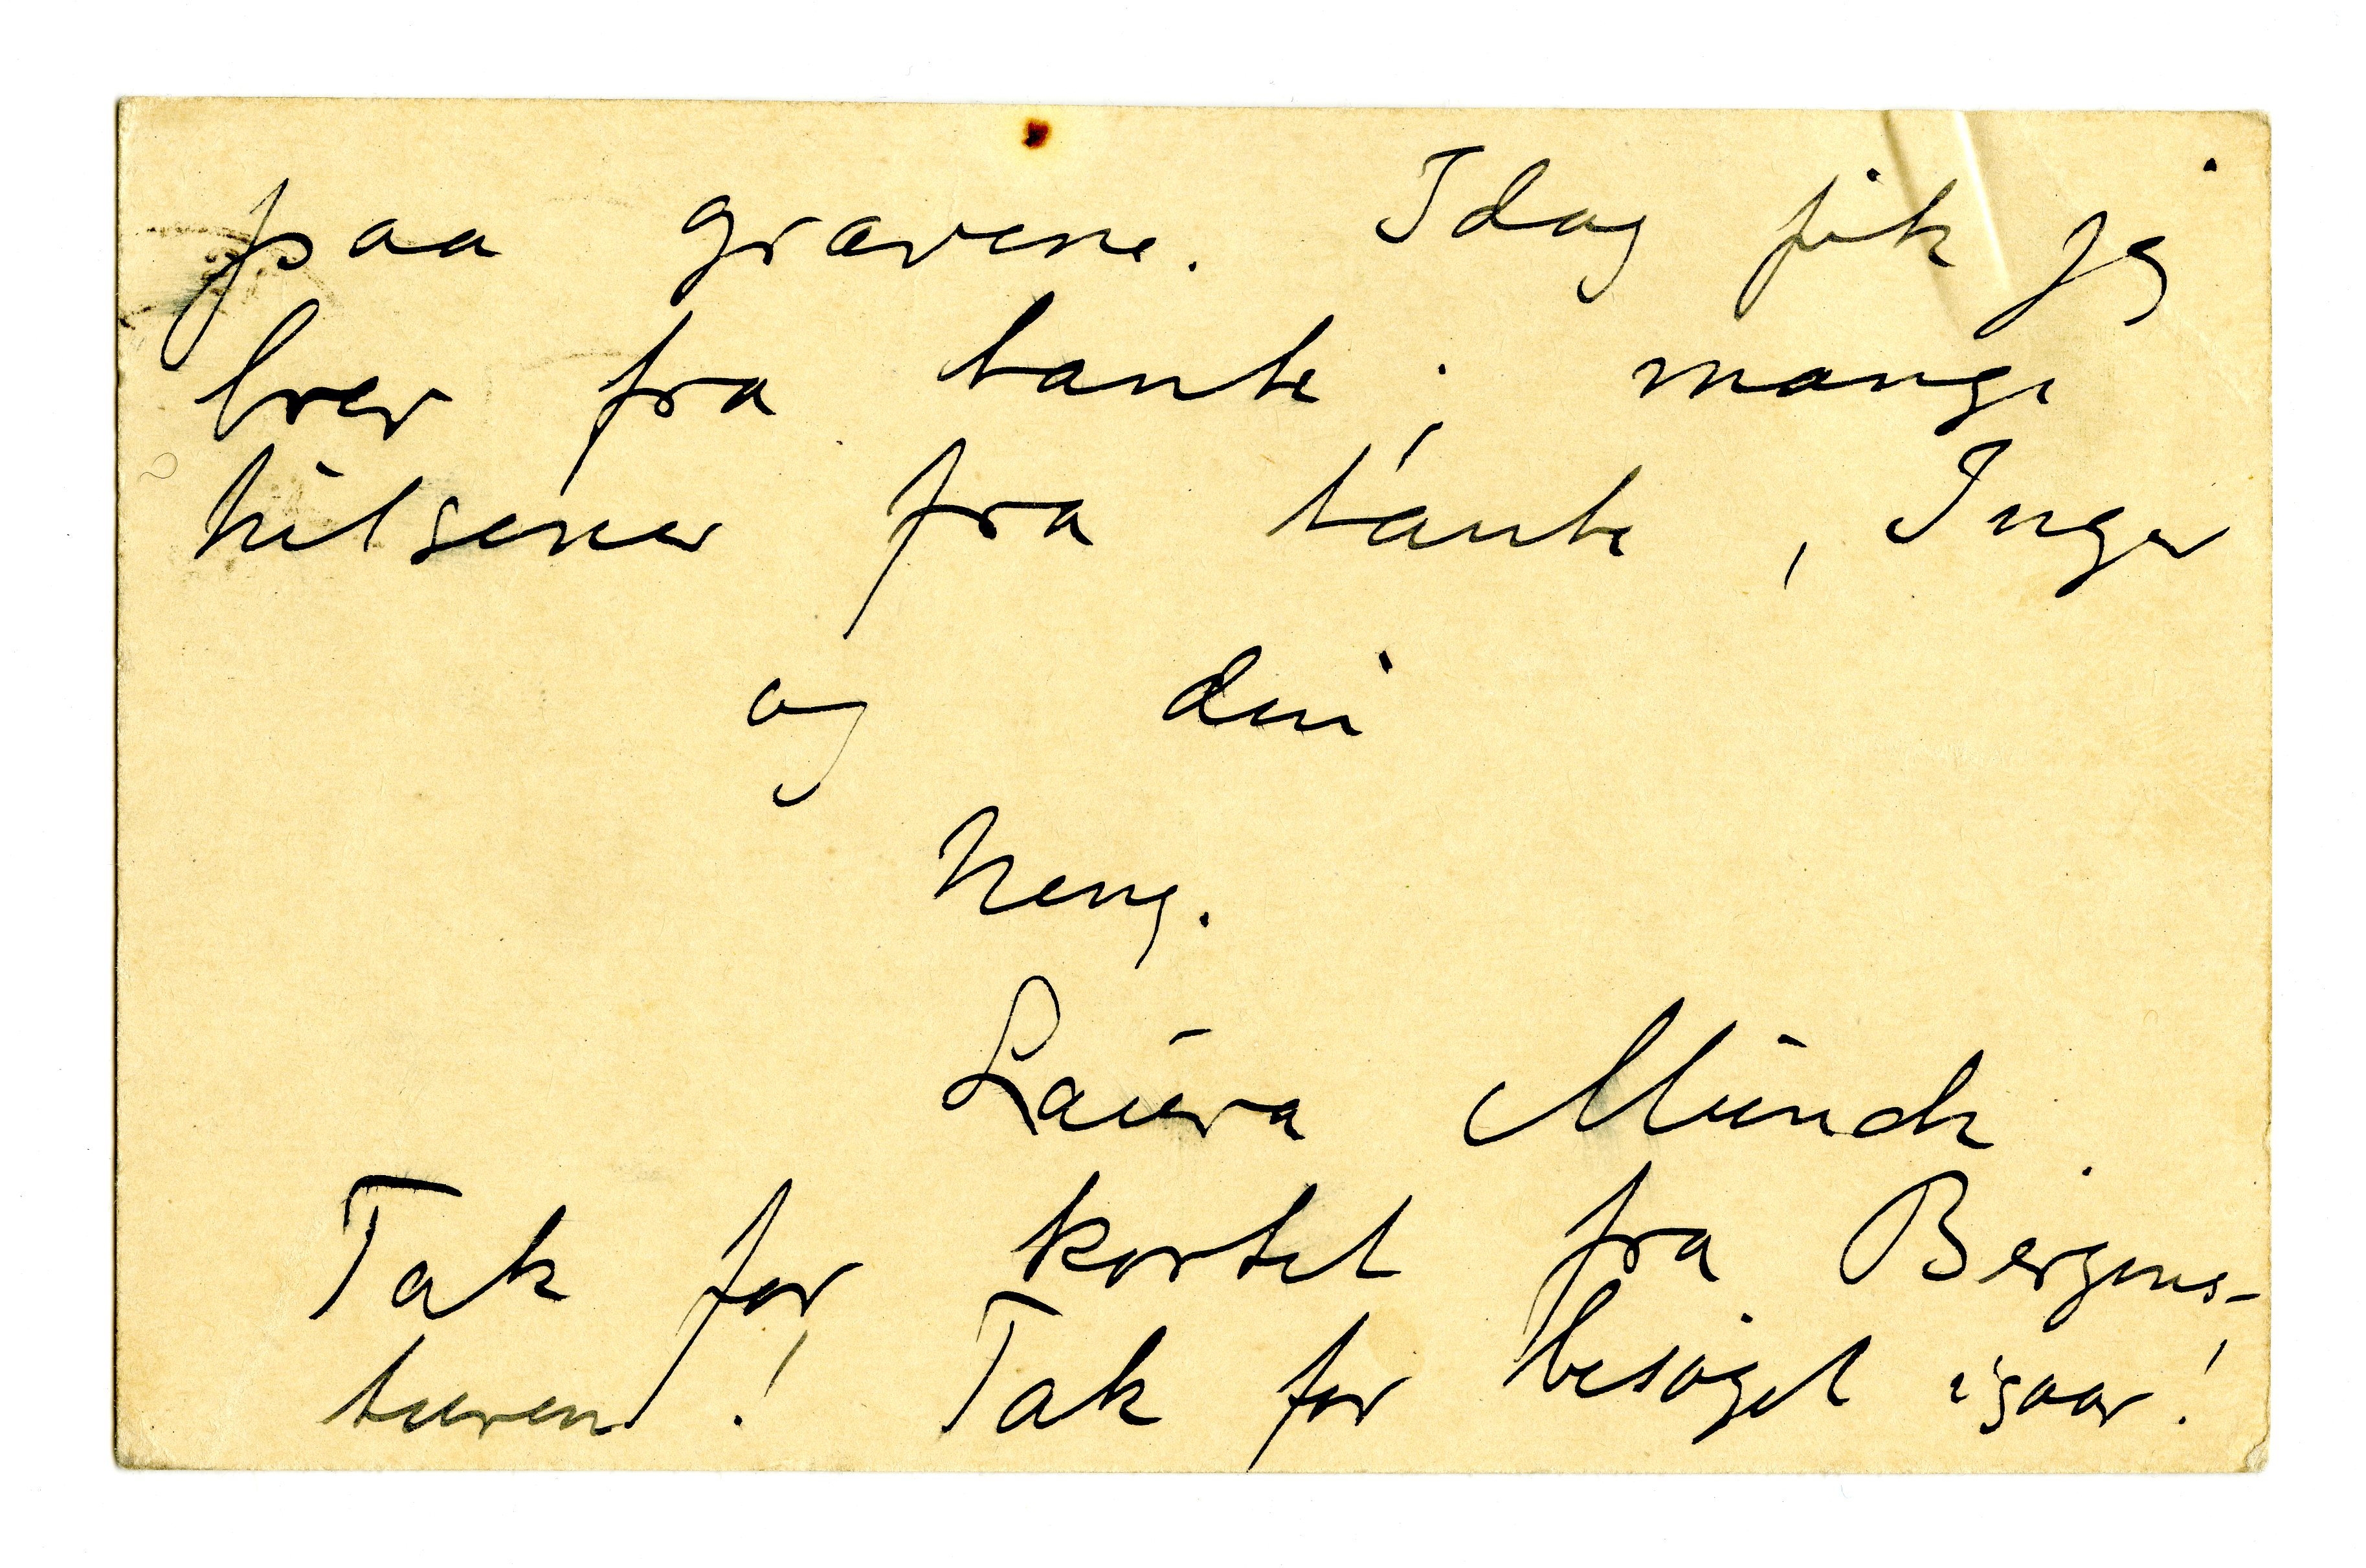 paa gravene. Idag fik jeg
brev fra tante; mange
hilsener fra tante, Inger
og din
heng.
Laura Munch
Tak for kortet fra Bergens-
turen! Tak for besøget igaar!